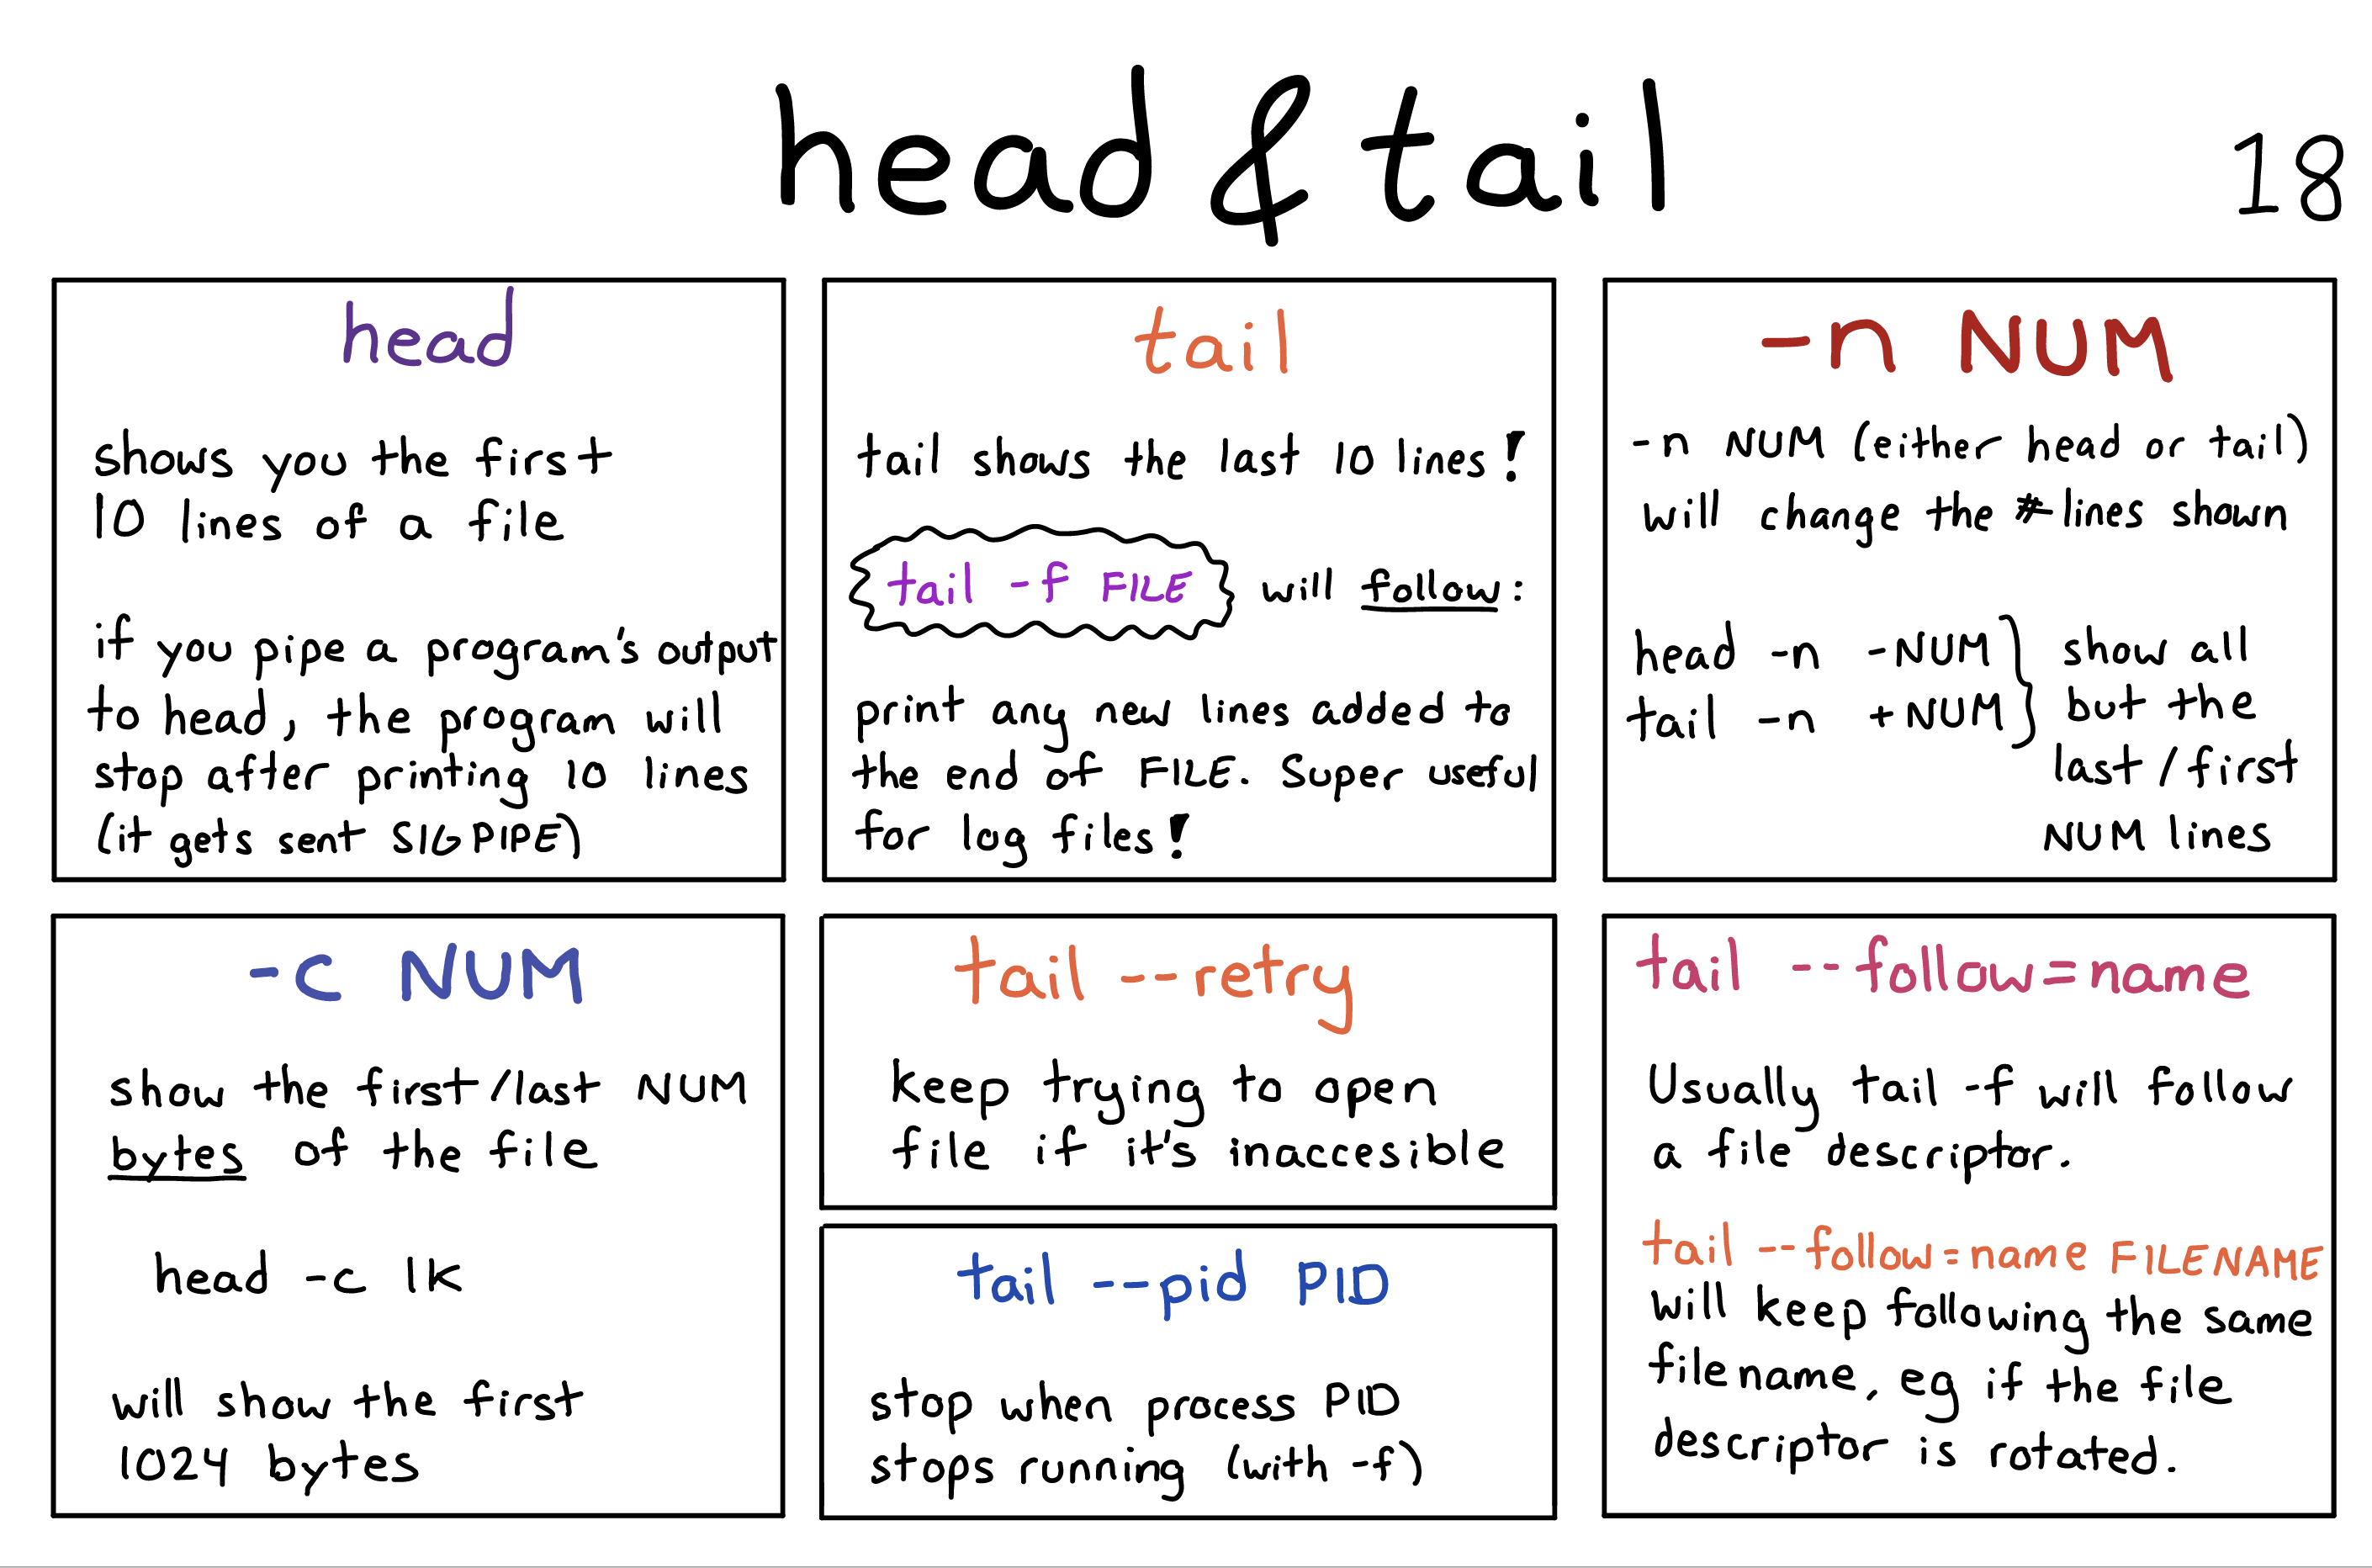 head & tail
18
head
shows you the first
10 lines of a file
if you pipe a program's output
to head, the program will
stop after printing 10 lines
(it gets sent SIGPIPE)
tail
tail shows the last 10 lines!
tail -f FILE will follow:
print any new lines added to
the end of FILE. Super useful
for log files!
-n NUM
-n NUM (either head or tail)
will change the # lines shown
head -n -NUM
tail -n +NUM
show all
but the
last/first
NUM lines
-c NUM
show the first/last NUM
bytes of the file
head -c 1k
will show the first
1024 bytes
tail --retry
keep trying to open
file if it's inaccesible
tail --pid PID
stop when process PID
stops running (with -f)
tail --follow=name
Usually tail -f will follow
a file descriptor.
tail --follow=name FILENAME
will keep following the same
filename, eg if the file
descriptor is rotated.